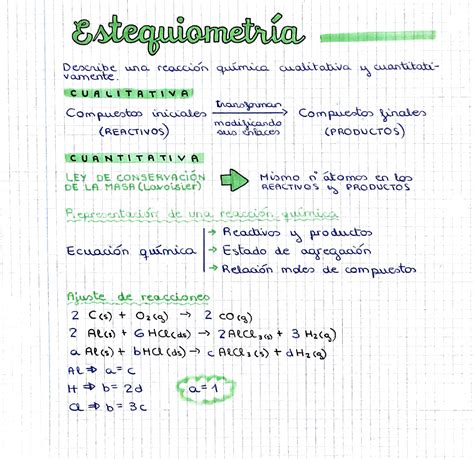 Estequiometría
Describe una reacción química cualitativa y cuantitati-
vamente.
CUALITATIVA
Compuestos iniciales transforman Compuestos finales
(REACTIVOS) modificando (PRODUCTOS)
sus enlaces
CUANTITATIVA
LEY DE CONSERVACIÓN ⇒ Mismo nº átomos en los
DE LA MASA (Lavoisier) REACTIVOS y PRODUCTOS
Representación de una reacción química
→ Reactivos y productos
Ecuación química → Estado de agregación
→ Relación moles de compuestos
Ajuste de reacciones
2 C(s) + O2(g) → 2 CO(g)
2 Al(s) + 6 HCl(ds) → 2 AlCl3(s) + 3 H2(g)
a Al(s) + b HCl(ds) → c AlCl3(s) + d H2(g)
Al ⇒ a = c
H ⇒ b = 2d a = 1
Cl ⇒ b = 3c